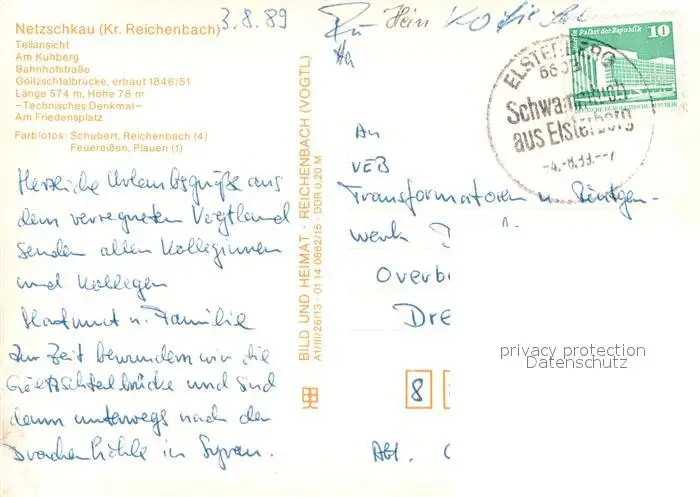 Netzschkau (Kr. Reichenbach)
3.8.89
Teilansicht
Am Kuhberg
Bahnhofstraße
Göltzschtalbrücke, erbaut 1846/51
Länge 574 m, Höhe 78 m
–Technisches Denkmal–
Am Friedensplatz
Farbfotos: Schubert, Reichenbach (4)
Feuereißen, Plauen (1)
Herzliche Urlaubsgrüße aus
dem verregneten Vogtland
senden allen Kolleginnen
und Kollegen
Hartmut u. Familie
Zur Zeit bewundern wir die
Göltzschtalbrücke und sind
dann unterwegs nach der
Drachenhöhle in Syrau.
BILD UND HEIMAT · REICHENBACH (VOGTL)
A1/III/26/13 · 01 14 0862/15 · DDR 0,20 M
Palast der Republik 10
ELSTERBERG
Schwammtuch
aus Elsterberg
An
VEB
Transformatoren u. Röntgen-
werk
Overb
Dre
8
Abt.
privacy protection
Datenschutz